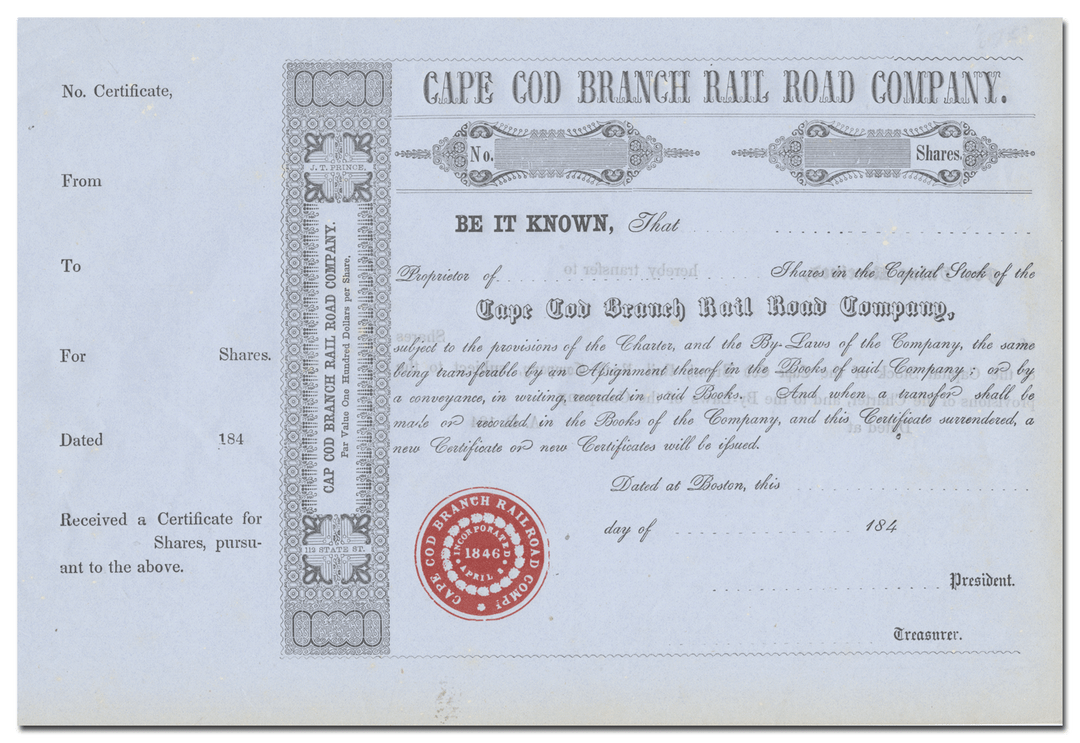 No. Certificate,
From
To
For Shares.
Dated 184
Received a Certificate for
Shares, pursu-
ant to the above.
J. T. PRINCE,
CAP COD BRANCH RAIL ROAD COMPANY.
Par Value One Hundred Dollars per Share,
112 STATE ST.
CAPE COD BRANCH RAIL ROAD COMPANY.
No. Shares.
BE IT KNOWN, That
Proprietor of Shares in the Capital Stock of the
Cape Cod Branch Rail Road Company,
subject to the provisions of the Charter, and the By-Laws of the Company, the same
being transferable by an Assignment thereof in the Books of said Company; or by
a conveyance, in writing, recorded in said Books. And when a transfer shall be
made or recorded in the Books of the Company, and this Certificate surrendered, a
new Certificate or new Certificates will be issued.
Dated at Boston, this
day of 184
President.
Treasurer.
CAPE COD BRANCH RAILROAD COMPY
INCORPORATED
1846
APRIL